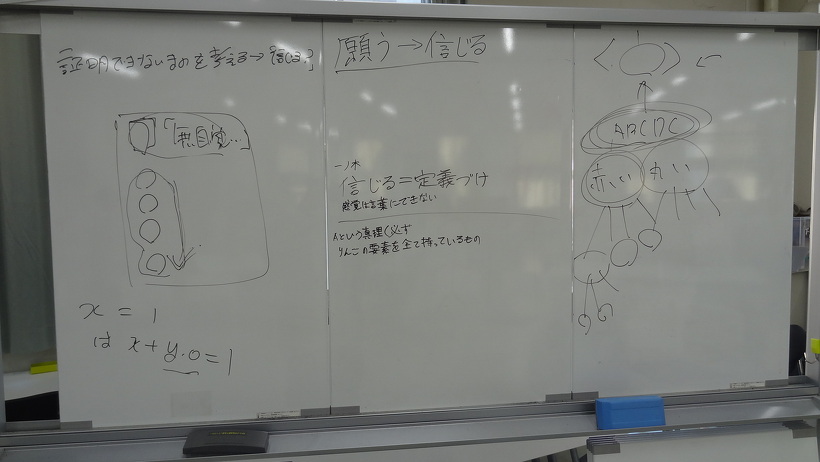 証明できないものを考える→信じる?
「無自覚…」
x = 1
は x + y・0 = 1
願う→信じる
信じる=定義づけ
感覚は言葉にできない
Aという真理(必ず
りんごの要素を全て持っているもの
ABCDC
赤い 丸い